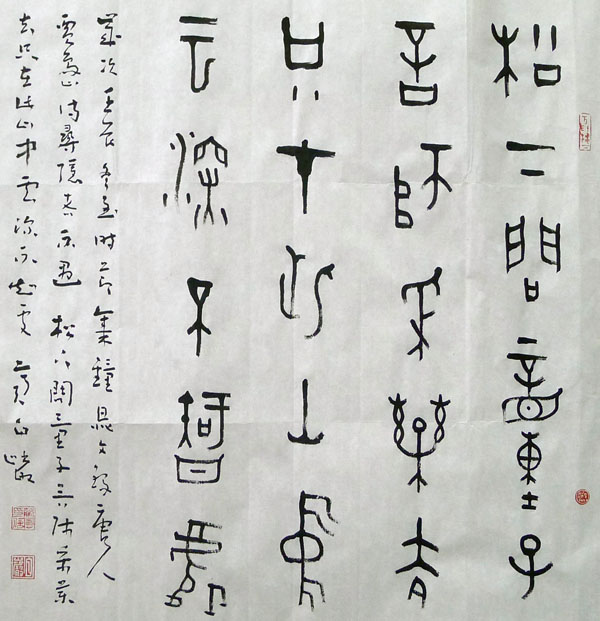 松下問童子
言師采藥去
只在此山中
云深不智處
歲次壬辰冬至時節集鐘鼎文錄唐人
賈島詩尋隱者不遇 松下問童子言師采藥
去只在此山中雲深不知處